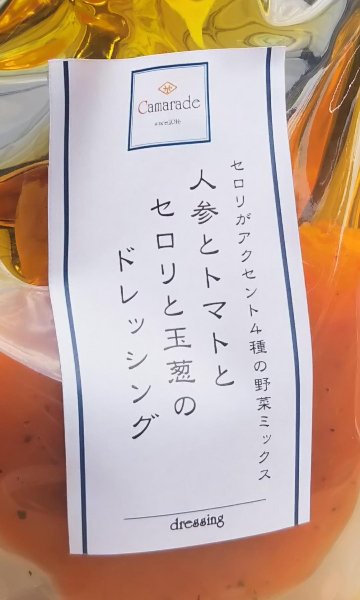 Camarade
セロリがアクセント4種の野菜ミックス
人参とトマトと
セロリと玉葱の
ドレッシング
dressing